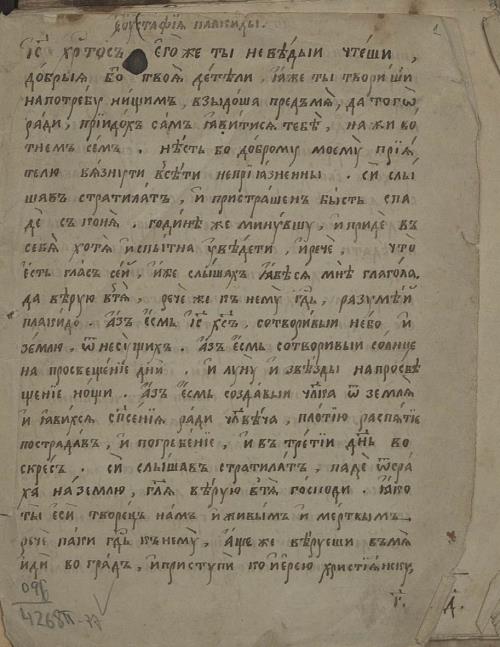 еѵстафїѧ плакиды.
і҃с хр҃тосъ егоже ты невѣдыи чтеши,
добрыѧ бо твоѧ дѣтели, ꙗже ты твориши
напотребу нищимъ, взыдоша предъмѧ, да тогѡ
ради, прїидохъ самъ ꙗвитисѧ тебѣ, наживо
тнемъ семъ. нѣсть бо доброму моему прїѧ
телю вѧзнути всѣти непрїѧзненны. сїѧ слы
шавъ стратилатъ, и пристрашенъ бысть спа
де съ конѧ. годинѣ же минувшу, и прииде въ
себѧ хотѧ испытна увѣдети, ирече что
есть гласъ сеи, иже слышахъ ꙗвѣсѧ мнѣ глаголѧ.
да вѣрую втѧ, рече же къ нему гд҃ь, разумѣи
плакидо. азъ есмь і҃с хс҃ъ, сотворивыи небо и
землю, ѿнесущихъ. азъ есмь сотворивыи солнце
на просвещенїе дни. и луну и звѣзды на просвѣ
щенїе нощи. азъ есмь создавыи чл҃ка ѿ землѧ
и ꙗвихсѧ сп҃сенїѧ ради чл҃вѣча, плотїю распѧтїе
пострадавъ, и погребенїе, и въ третїи дн҃ь во
скресъ. сїѧ слышавъ стратилатъ, паде ѿстра
ха на землю, гл҃ѧ вѣрую втѧ господи. ꙗко
ты еси творецъ намъ иживымъ и мертвымъ
рече паки гд҃ь кнему, аще же вѣруеши въмѧ
иди во градъ, иприступи ко иерею христїѧнску,
4268П
г҃. д҃.